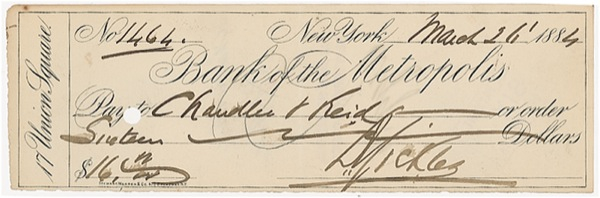 No 1464. New York March 26' 1884
Bank of the Metropolis
Pay to Chandler & Reid or order
Sixteen Dollars
$16
17 Union Square